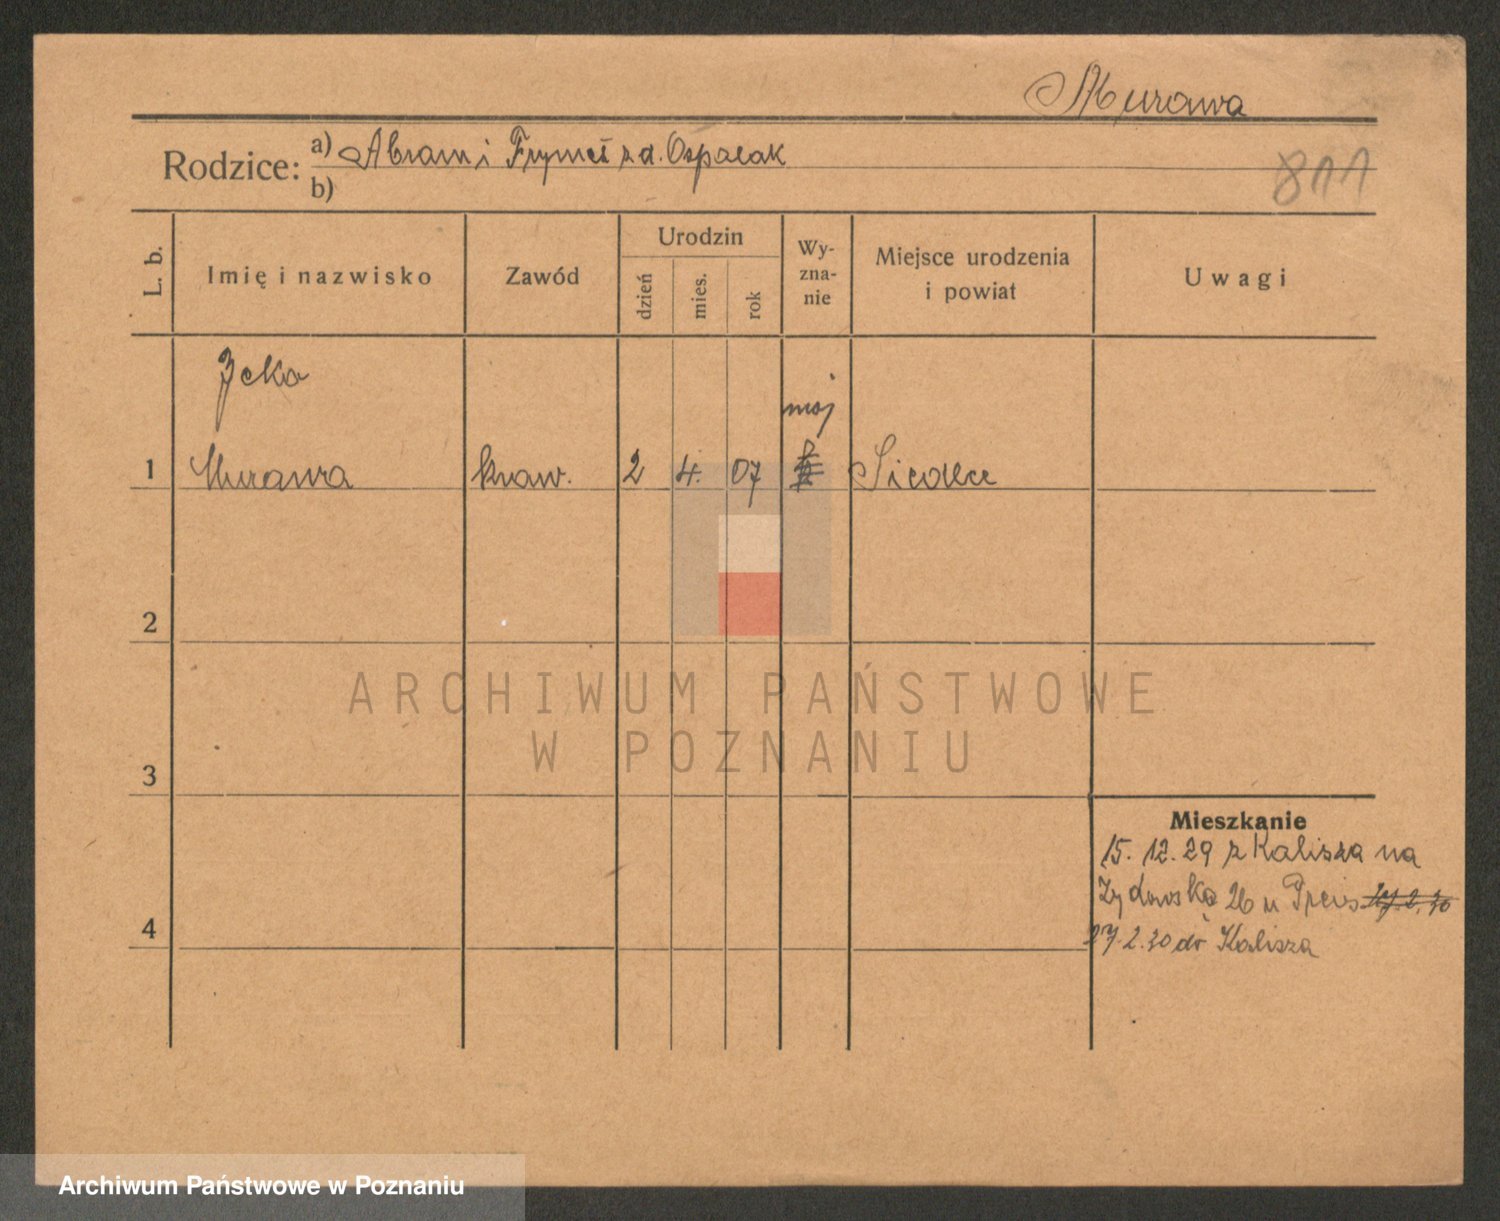 Murawa
Rodzice: a) Abram i Frymet z d. Ospalak
b)
811
L. b. Imię i nazwisko Zawód Urodzin dzień mies. rok Wy-zna-nie Miejsce urodzenia i powiat Uwagi
Icko
moj
1 Murawa kraw. 2 4. 07 Siedlce
2
3
4
Mieszkanie
15. 12. 29 z Kalisza na
Żydowska 26 u Preis 27.2.30
27.2.30 do Kalisza
ARCHIWUM PAŃSTWOWE
W POZNANIU
Archiwum Państwowe w Poznaniu